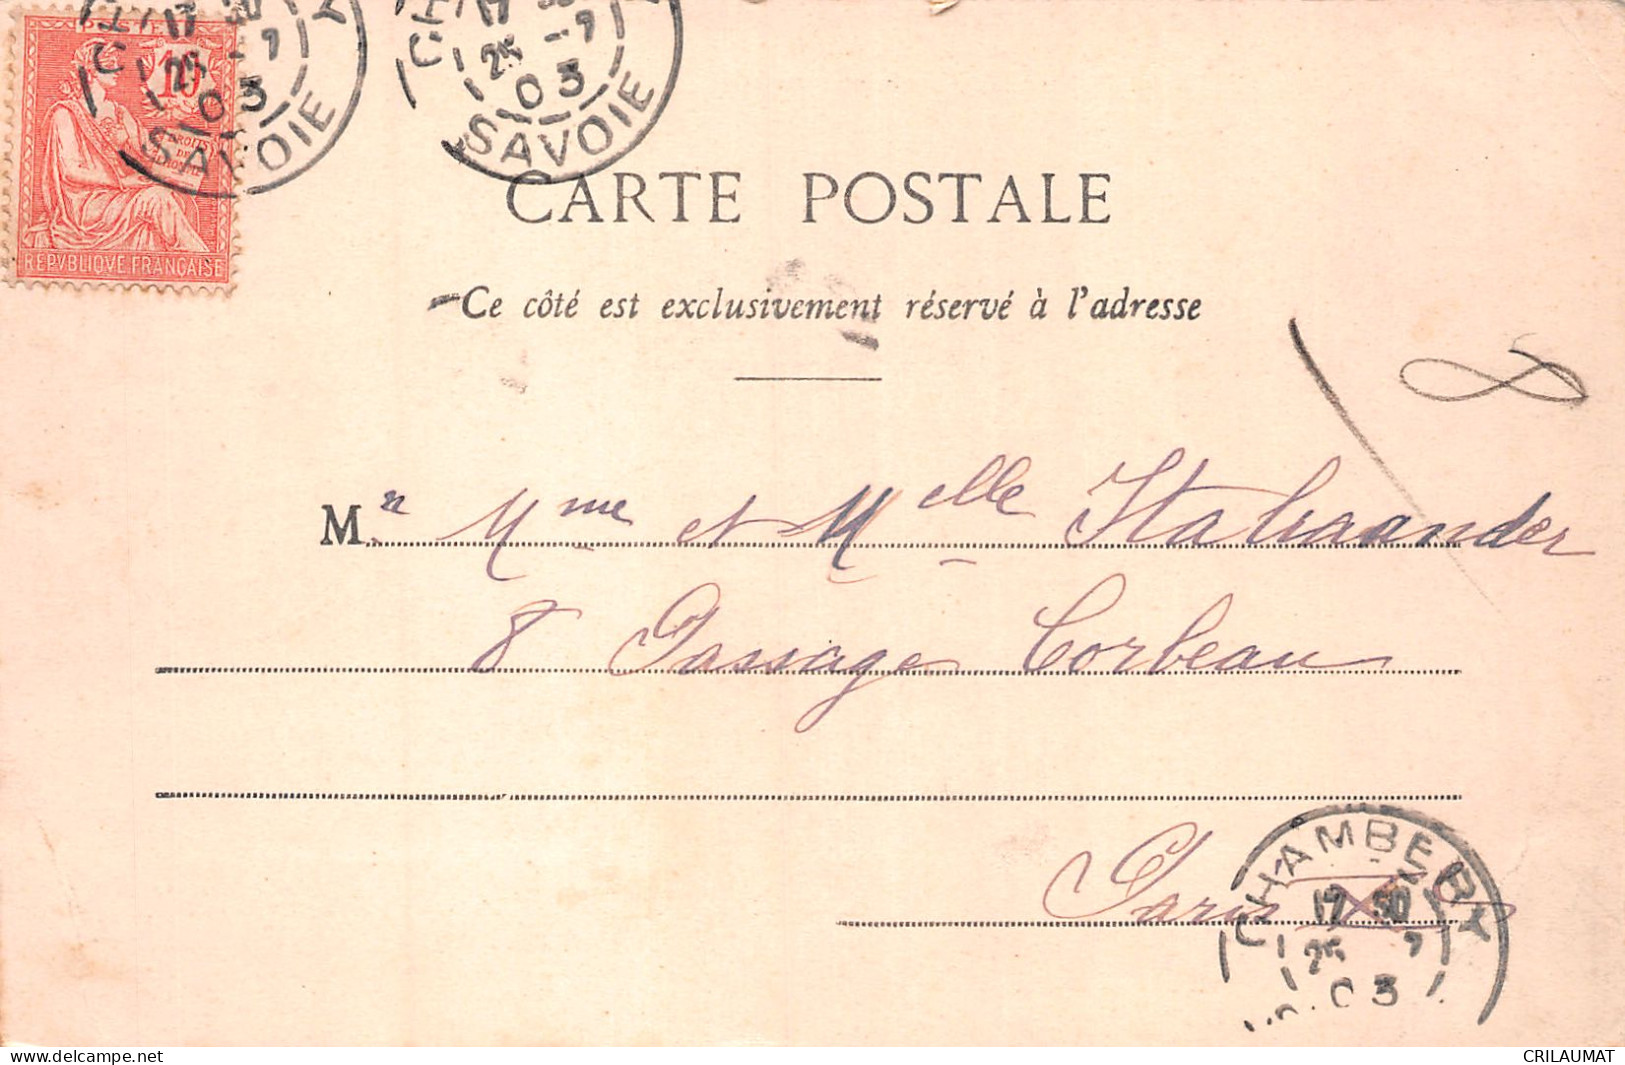 POSTES
10
DROITS
DE
L'HOMME
REPVBLIQVE FRANÇAISE
17 30
25 -7
03
SAVOIE
17
25 -7
03
SAVOIE
CARTE POSTALE
Ce côté est exclusivement réservé à l'adresse
8
Mr Mme et Melle Italiaander
8 Passage Corbeau
Paris X
CHAMBERY
17 30
25 7
03
CRILAUMAT